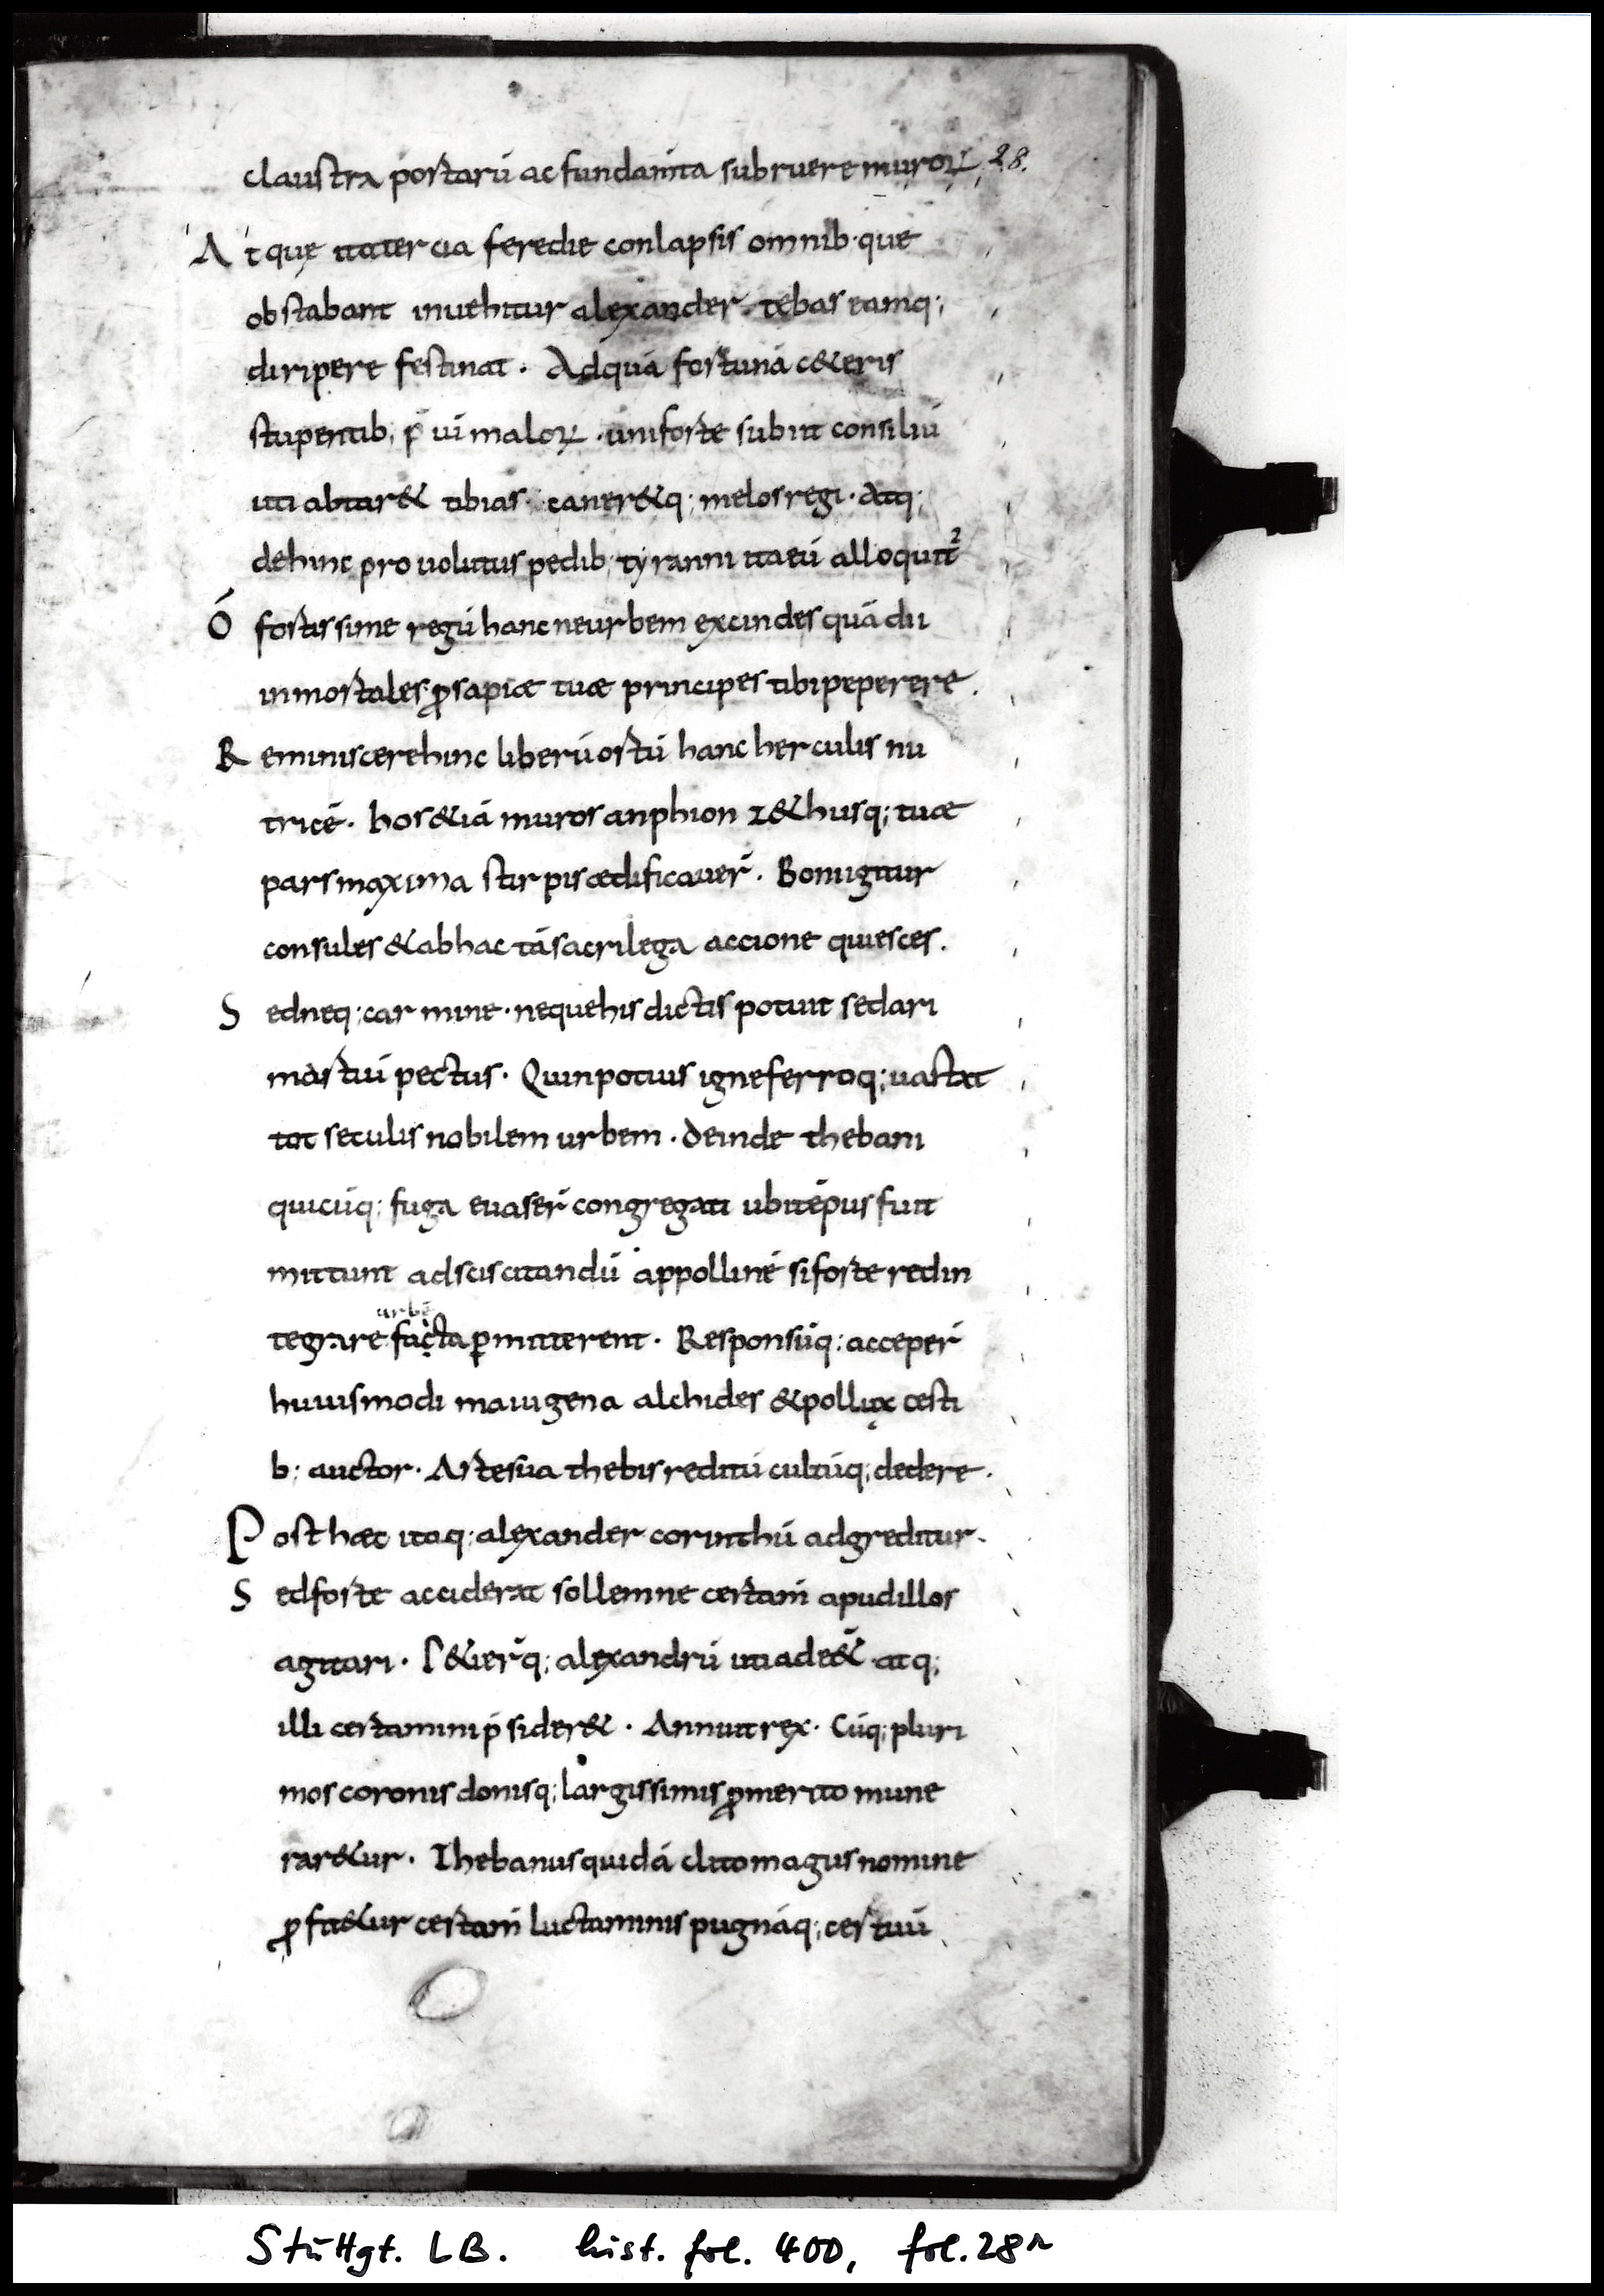 claustra portarū ac fundam̄ta subruere muroꝝ 28.
Atquę ita tercia feredie conlapsis omnib· que
obstabant inuehitur alexander tebas eamq;
diripere festinat. Adquā fortunā c&eris
stupentib; p̄ ui maloꝝ · uni forte subiit consiliū
uti abtar& tibias · caner&q; melos regi · Atq;
dehinc prouolutus pedib; tyranni ita eū alloquit²
Ó fortissime regū hanc ne urbem excindes quā dii
inmortales ꝓsapiæ tuæ principes tibi peperere.
Reminiscere hinc liberū ortū hanc herculis nu
tricē. hos &iā muros anphion z&husq; tuæ
pars maxima stirpis ædificauer̄. Boni igitur
consules & ab hac tā sacrilega accione quiesces.
Sed neq; carmine · neque his dictis potuit sedari
mastui pectus. Quin potius igne ferroq; uastat
tot seculis nobilem urbem. deinde thebani
quicūq; fuga euaser̄ congregati ubi tēpus fuit
mittunt ad sciscitandū appollinē si forte redin
urbē
tegrare facta ꝑmitterent. Responsūq; acceper̄
huiusmodi maiugena alchides & pollux cesti
b; auctor. Arte sua thebis reditū cultūq; dedere.
Post hæc itaq; alexander corinthū adgreditur.
Sed forte acciderat sollemne certam̄ apud illos
agitari. P&ier̄q; alexandrū uti ade&̄ atq;
illi certamini p̄sider&. Annuit rex. Cūq; pluri
mos coronis donisq; largissimis ꝓ merito mune
rar&ur. Thebanus quidā clitomagus nomine
ꝓfit&ur certam̄ luctaminis pugnāq; certuū
Stuttgt. LB. hist. fol. 400, fol. 28r